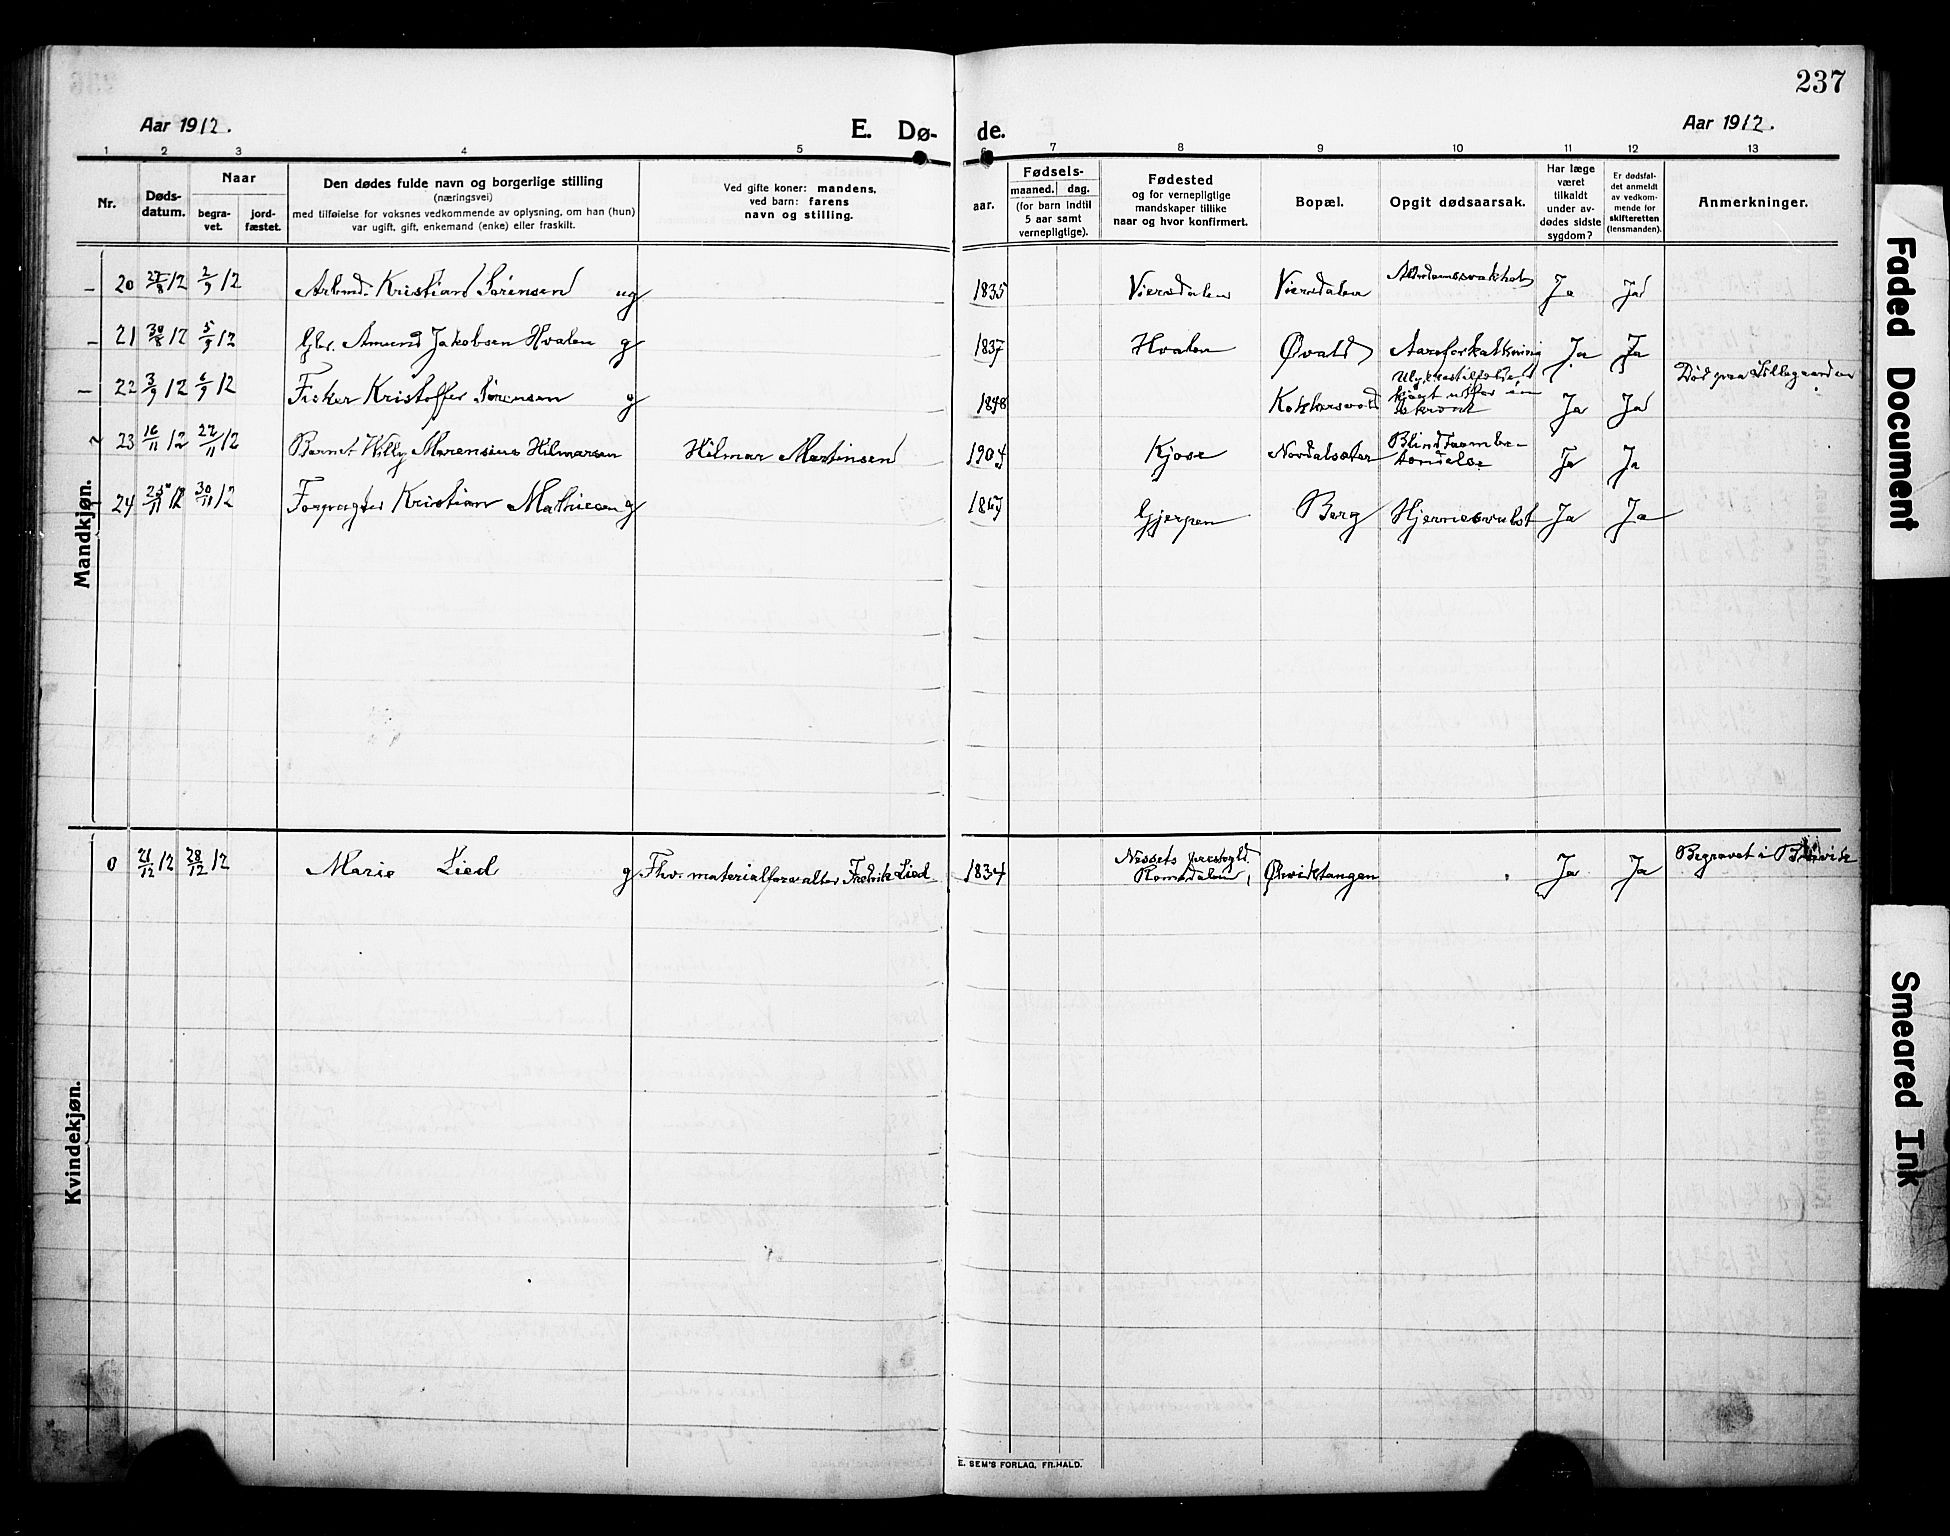 237
Aar 1912.
E. Dø-
de.
Aar 1912.
1 2 3 4 5 6 7 8 9 10 11 12 13
Nr.
Døds-
datum.
Naar
begra-
vet.
jord-
fæstet.
Den dødes fulde navn og borgerlige stilling
(næringsvei)
med tilføielse for voksnes vedkommende av oplysning, om han (hun)
var ugift, gift, enkemand (enke) eller fraskilt.
Ved gifte koner: mandens,
ved barn: farens
navn og stilling.
aar.
Fødsels-
maaned. dag.
(for barn indtil
5 aar samt
vernepligtige).
Fødested
og for vernepligtige
mandskaper tillike
naar og hvor konfirmert.
Bopæl.
Opgit dødsaarsak.
Har læge
været
tilkaldt
under av-
dødes sidste
sygdom?
Er dødsfal-
det anmeldt
av vedkom-
mende for
skifteretten
(lensmanden).
Anmerkninger.
Mandkjøn.
20 27/8 12 2/9 12 Arbmd. Kristian Sørensen ug 1835 Viersdalen Viersdalen Alderdomssvakhet Ja Ja
21 30/8 12 5/9 12 Gbr. Amund Jakobsen Hvalen g 1837 Hvalen Øvald Aareforkalkning Ja Ja
22 3/9 12 6/9 12 Fisker Kristoffer Sørensen g 1848 Kokkersvold Ja Ja Død paa Lillegaarden
23 16/11 12 22/11 12 Barnet Willy Marensius Hilmarsen Hilmar Martinsen 1904 Kjose Nordalsæter Blindtarmbe-
tændelse Ja Ja
24 25/11 12 30/11 12 Forpagter Kristian Mathisen g 1867 Gjerpen Berg Hjernesvulst Ja Ja
Kvindekjøn.
0 21/12 12 28/12 12 Marie Lied g Fhv. materialforvalter Fredrik Lied 1834 Nessets prestegld.
Romsdalen, Ørviktangen Ja Ja Begravet i
E. SEM'S FORLAG, FR.HALD.
Faded Document
Smeared Ink